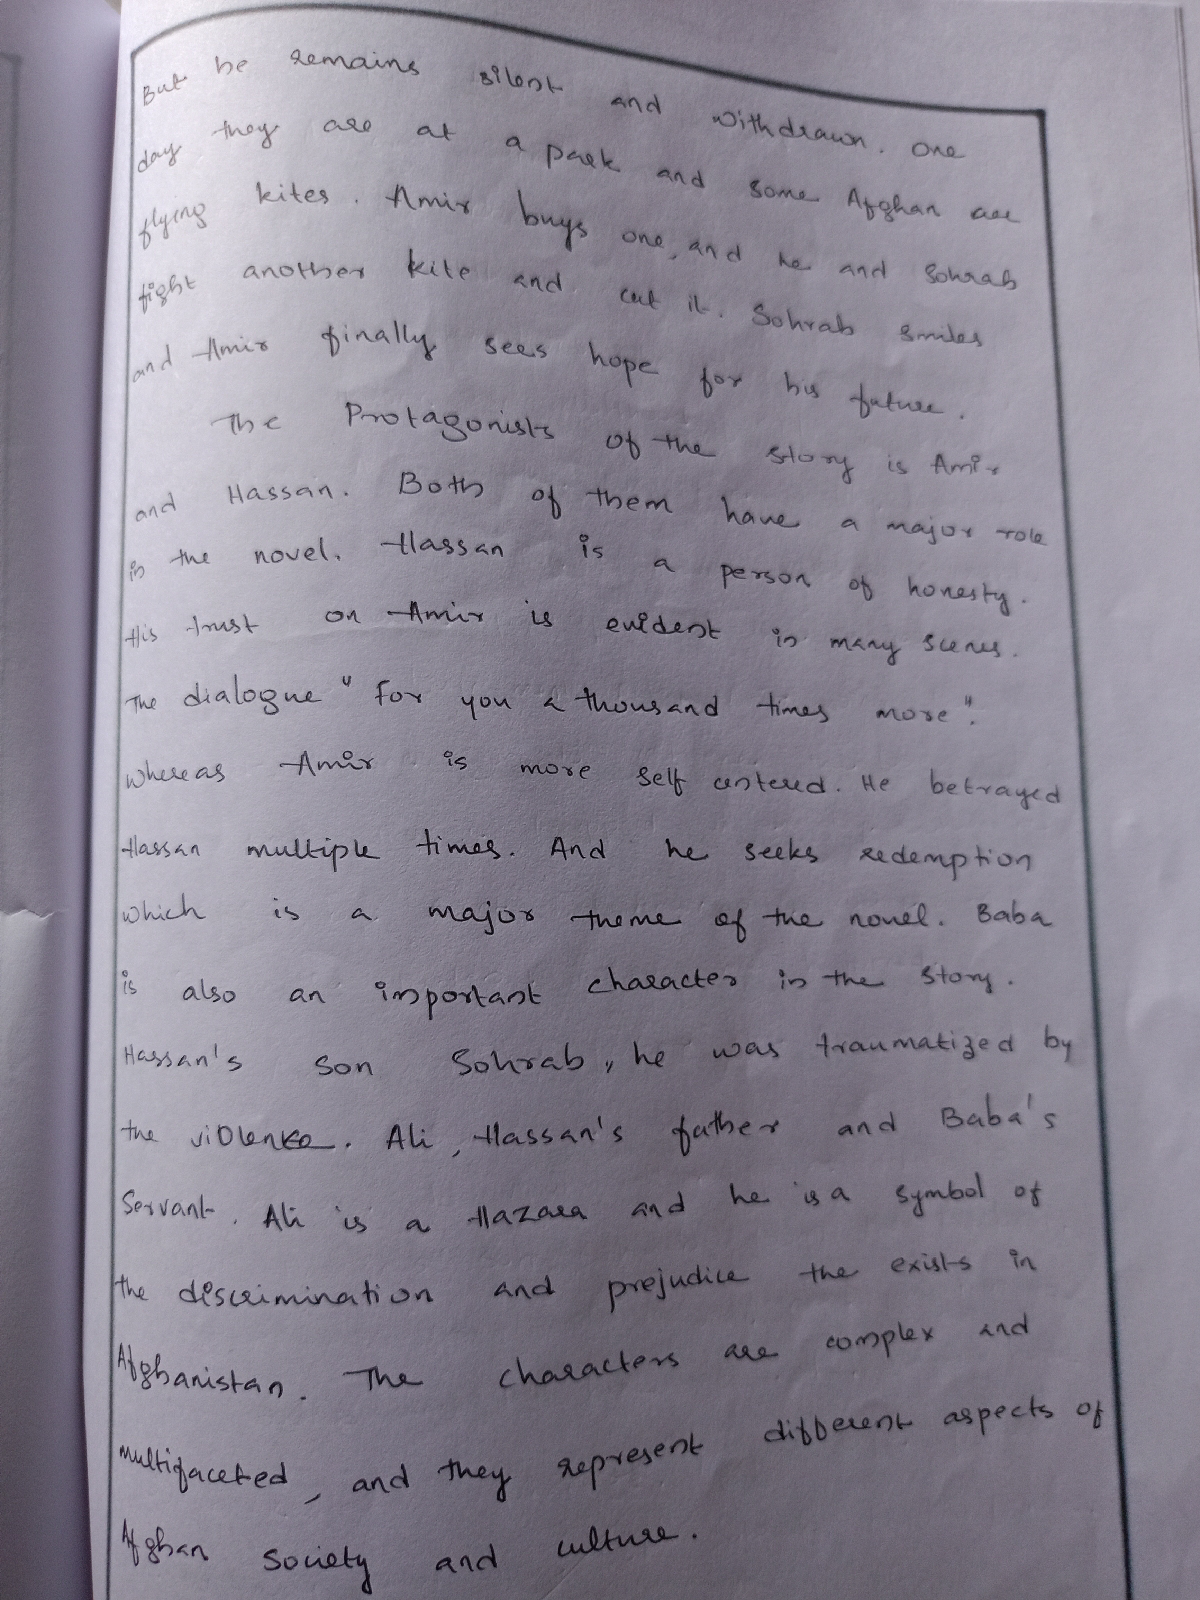 But he remains silent and withdrawn. One
day they are at a park and some Afghan are
flying kites. Amir buys one, and he and Sohrab
fight another kite and cut it. Sohrab smiles
and Amir finally sees hope for his future.
The Protagonists of the story is Amir
and Hassan. Both of them have a major role
in the novel. Hassan is a person of honesty.
His trust on Amir is evident in many scenes.
The dialogue "For you a thousand times more".
whereas Amir is more self centered. He betrayed
Hassan multiple times. And he seeks redemption
which is a major theme of the novel. Baba
is also an important character in the story.
Hassan's son Sohrab, he was traumatized by
the violence. Ali, Hassan's father and Baba's
Servant. Ali is a Hazara and he is a symbol of
the discrimination and prejudice the exists in
Afghanistan. The characters are complex and
multifaceted, and they represent different aspects of
Afghan society and culture.